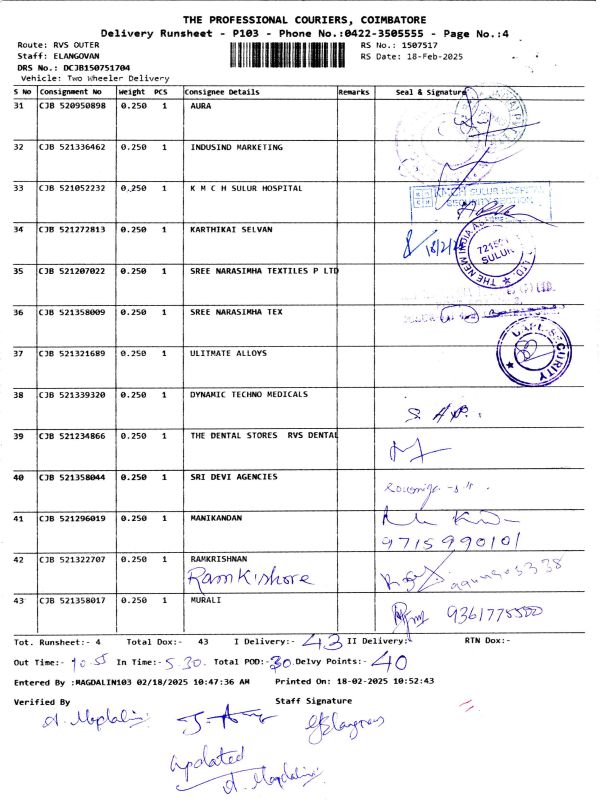 THE PROFESSIONAL COURIERS, COIMBATORE
Delivery Runsheet - P103 - Phone No.:0422-3505555 - Page No.:4
Route: RVS OUTER RS No.: 1507517
Staff: ELANGOVAN RS Date: 18-Feb-2025
DRS No.: DCJB150751704
Vehicle: Two Wheeler Delivery
S No Consignment No Weight PCS Consignee Details Remarks Seal & Signature
31 CJB 520950898 0.250 1 AURA
32 CJB 521336462 0.250 1 INDUSIND MARKETING
33 CJB 521052232 0.250 1 K M C H SULUR HOSPITAL
KMCH SULUR HOSPITAL
SECURITY SECTION
34 CJB 521272813 0.250 1 KARTHIKAI SELVAN
18/2/25
THE NEW INDIA LTD.
SULUR
35 CJB 521207022 0.250 1 SREE NARASIMHA TEXTILES P LTD
36 CJB 521358009 0.250 1 SREE NARASIMHA TEX
37 CJB 521321689 0.250 1 ULITMATE ALLOYS
SECURITY
38 CJB 521339320 0.250 1 DYNAMIC TECHNO MEDICALS
39 CJB 521234866 0.250 1 THE DENTAL STORES RVS DENTAL
40 CJB 521358044 0.250 1 SRI DEVI AGENCIES
41 CJB 521296019 0.250 1 MANIKANDAN
9715990101
42 CJB 521322707 0.250 1 RAMKRISHNAN
Ramkishore
43 CJB 521358017 0.250 1 MURALI
Tot. Runsheet:- 4 Total Dox:- 43 I Delivery:- 43 II Delivery:- RTN Dox:-
Out Time:- 10.55 In Time:- 5.30. Total POD:- 30 Delvy Points:- 40
Entered By :MAGDALIN103 02/18/2025 10:47:36 AM Printed On: 18-02-2025 10:52:43
Verified By Staff Signature
A. Magdalin
Elangovan
updated
A. Magdalin